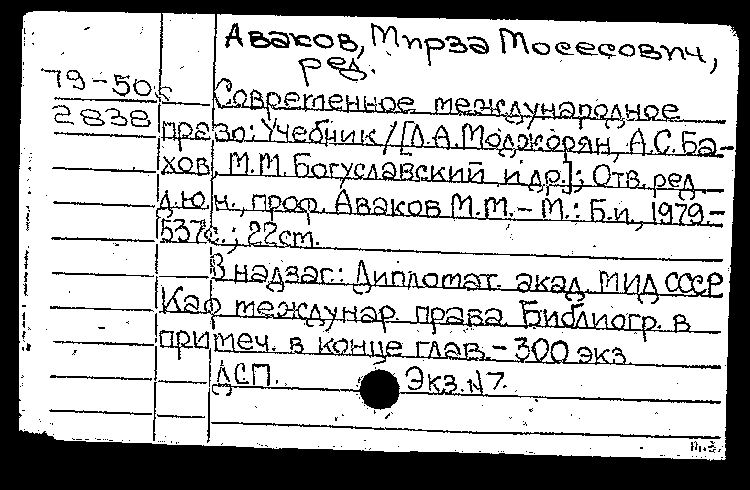 Аваков, Мирза Мосесович,
ред.
79-50с
2838
Современное международное
право: Учебник / [Л.А. Моджорян, А.С. Ба-
хов, М.М. Богуславский и др.]; Отв. ред.
д.ю.н., проф. Аваков М.М. – М.: Б.и., 1979.–
537с.; 22см.
В надзаг.: Дипломат. акад. МИД СССР
Каф междунар. права. Библиогр. в
примеч. в конце глав. – 300 экз
ДСП. Экз. №7.